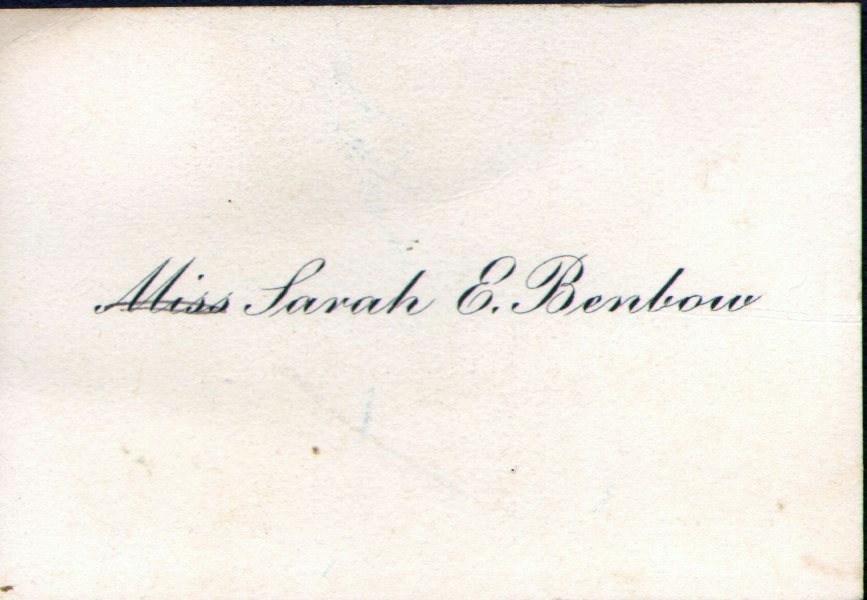 Miss Sarah E. Benbow